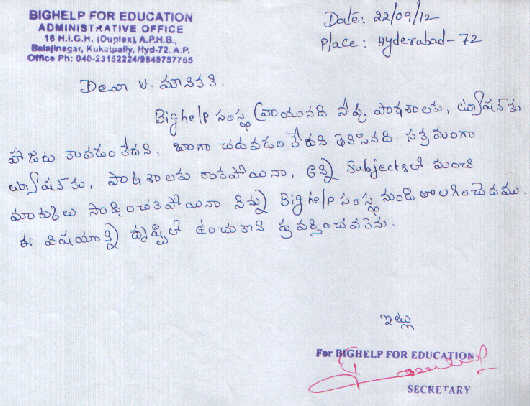 BIGHELP FOR EDUCATION
ADMINISTRATIVE OFFICE
16 H.I.G.H. (Duplex), A.P.H.B.,
Balajinagar, Kukatpally, Hyd-72. A.P.
Office Ph: 040-23152224/9848757765
Date: 22/09/12
Place: Hyderabad-72
Dear V. మానస.
Bighelp సంస్థ వ్రాయునది నీవు పాఠశాలకు, ట్యూషన్‌కు
హాజరు కావడంలేదని. బాగా చదవడంలేదని తెలిసినది సక్రమంగా
ట్యూషన్‌కు, పాఠశాలకు రాకపోయినా, అన్ని Subjectsలో మంచి
మార్కులు సాధించకపోయినా నిన్ను Bighelp సంస్థ నుండి తొలగించెదము.
ఈ విషయాన్ని దృష్టిలో ఉంచుకొని ప్రవర్తించవలెను.
ఇట్లు
For BIGHELP FOR EDUCATION
SECRETARY